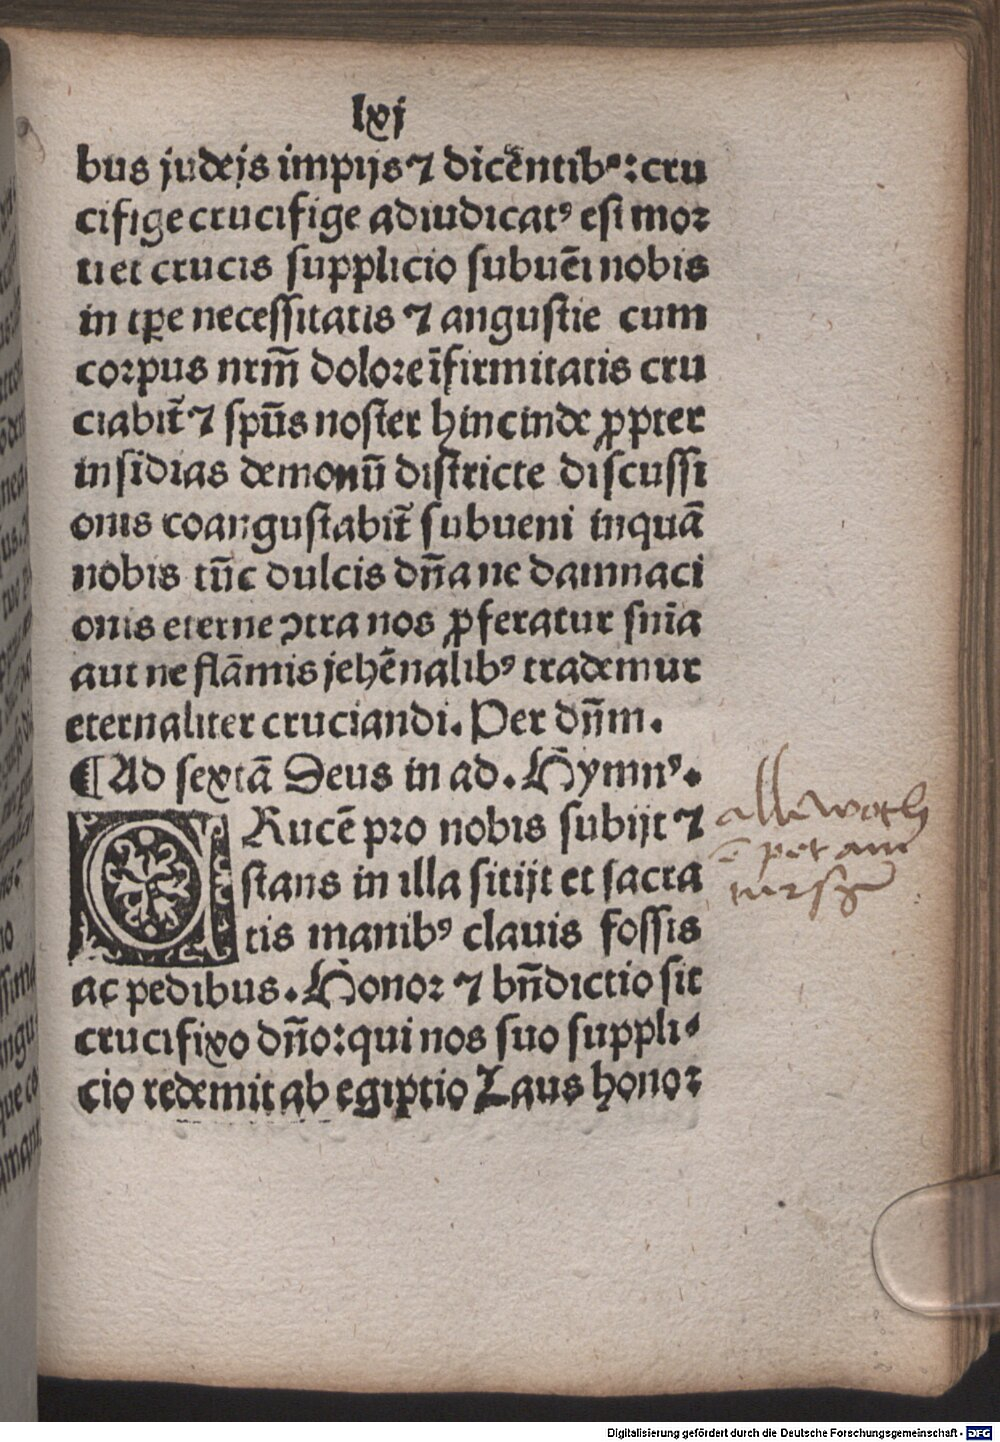 lxj
bus judejs impijs ⁊ dicentibꝰ: cru
cifige crucifige adiudicatꝰ est moꝛ
ti et crucis supplicio subuēi nobis
in tꝑe necessitatis ⁊ angustie cum
coꝛpus nrm̄ doloꝛe īfirmitatis cru
ciabit̄ ⁊ spūs noster hincinde ꝓpter
insidias demonū districte discussi
onis coangustabit̄ subueni inquā
nobis tūc dulcis dn̄a ne damnaci
onis eterne ꝯtra nos ꝓferatur snīa
aut ne flāmis jehēnalibꝰ trademur
eternaliter cruciandi. Per dn̄m.
¶Ad sextā Deus in ad. Hymnꝰ.
CRucē pro nobis subijt ⁊
stans in illa sitijt et sacra
tis manibꝰ clauis fossis
ac pedibus. Honoꝛ ⁊ bn̄dictio sit
crucifixo dn̄o: qui nos suo suppli⸗
cio redemit ab egiptio Laus honoꝛ
Digitalisierung gefördert durch die Deutsche Forschungsgemeinschaft - DFG